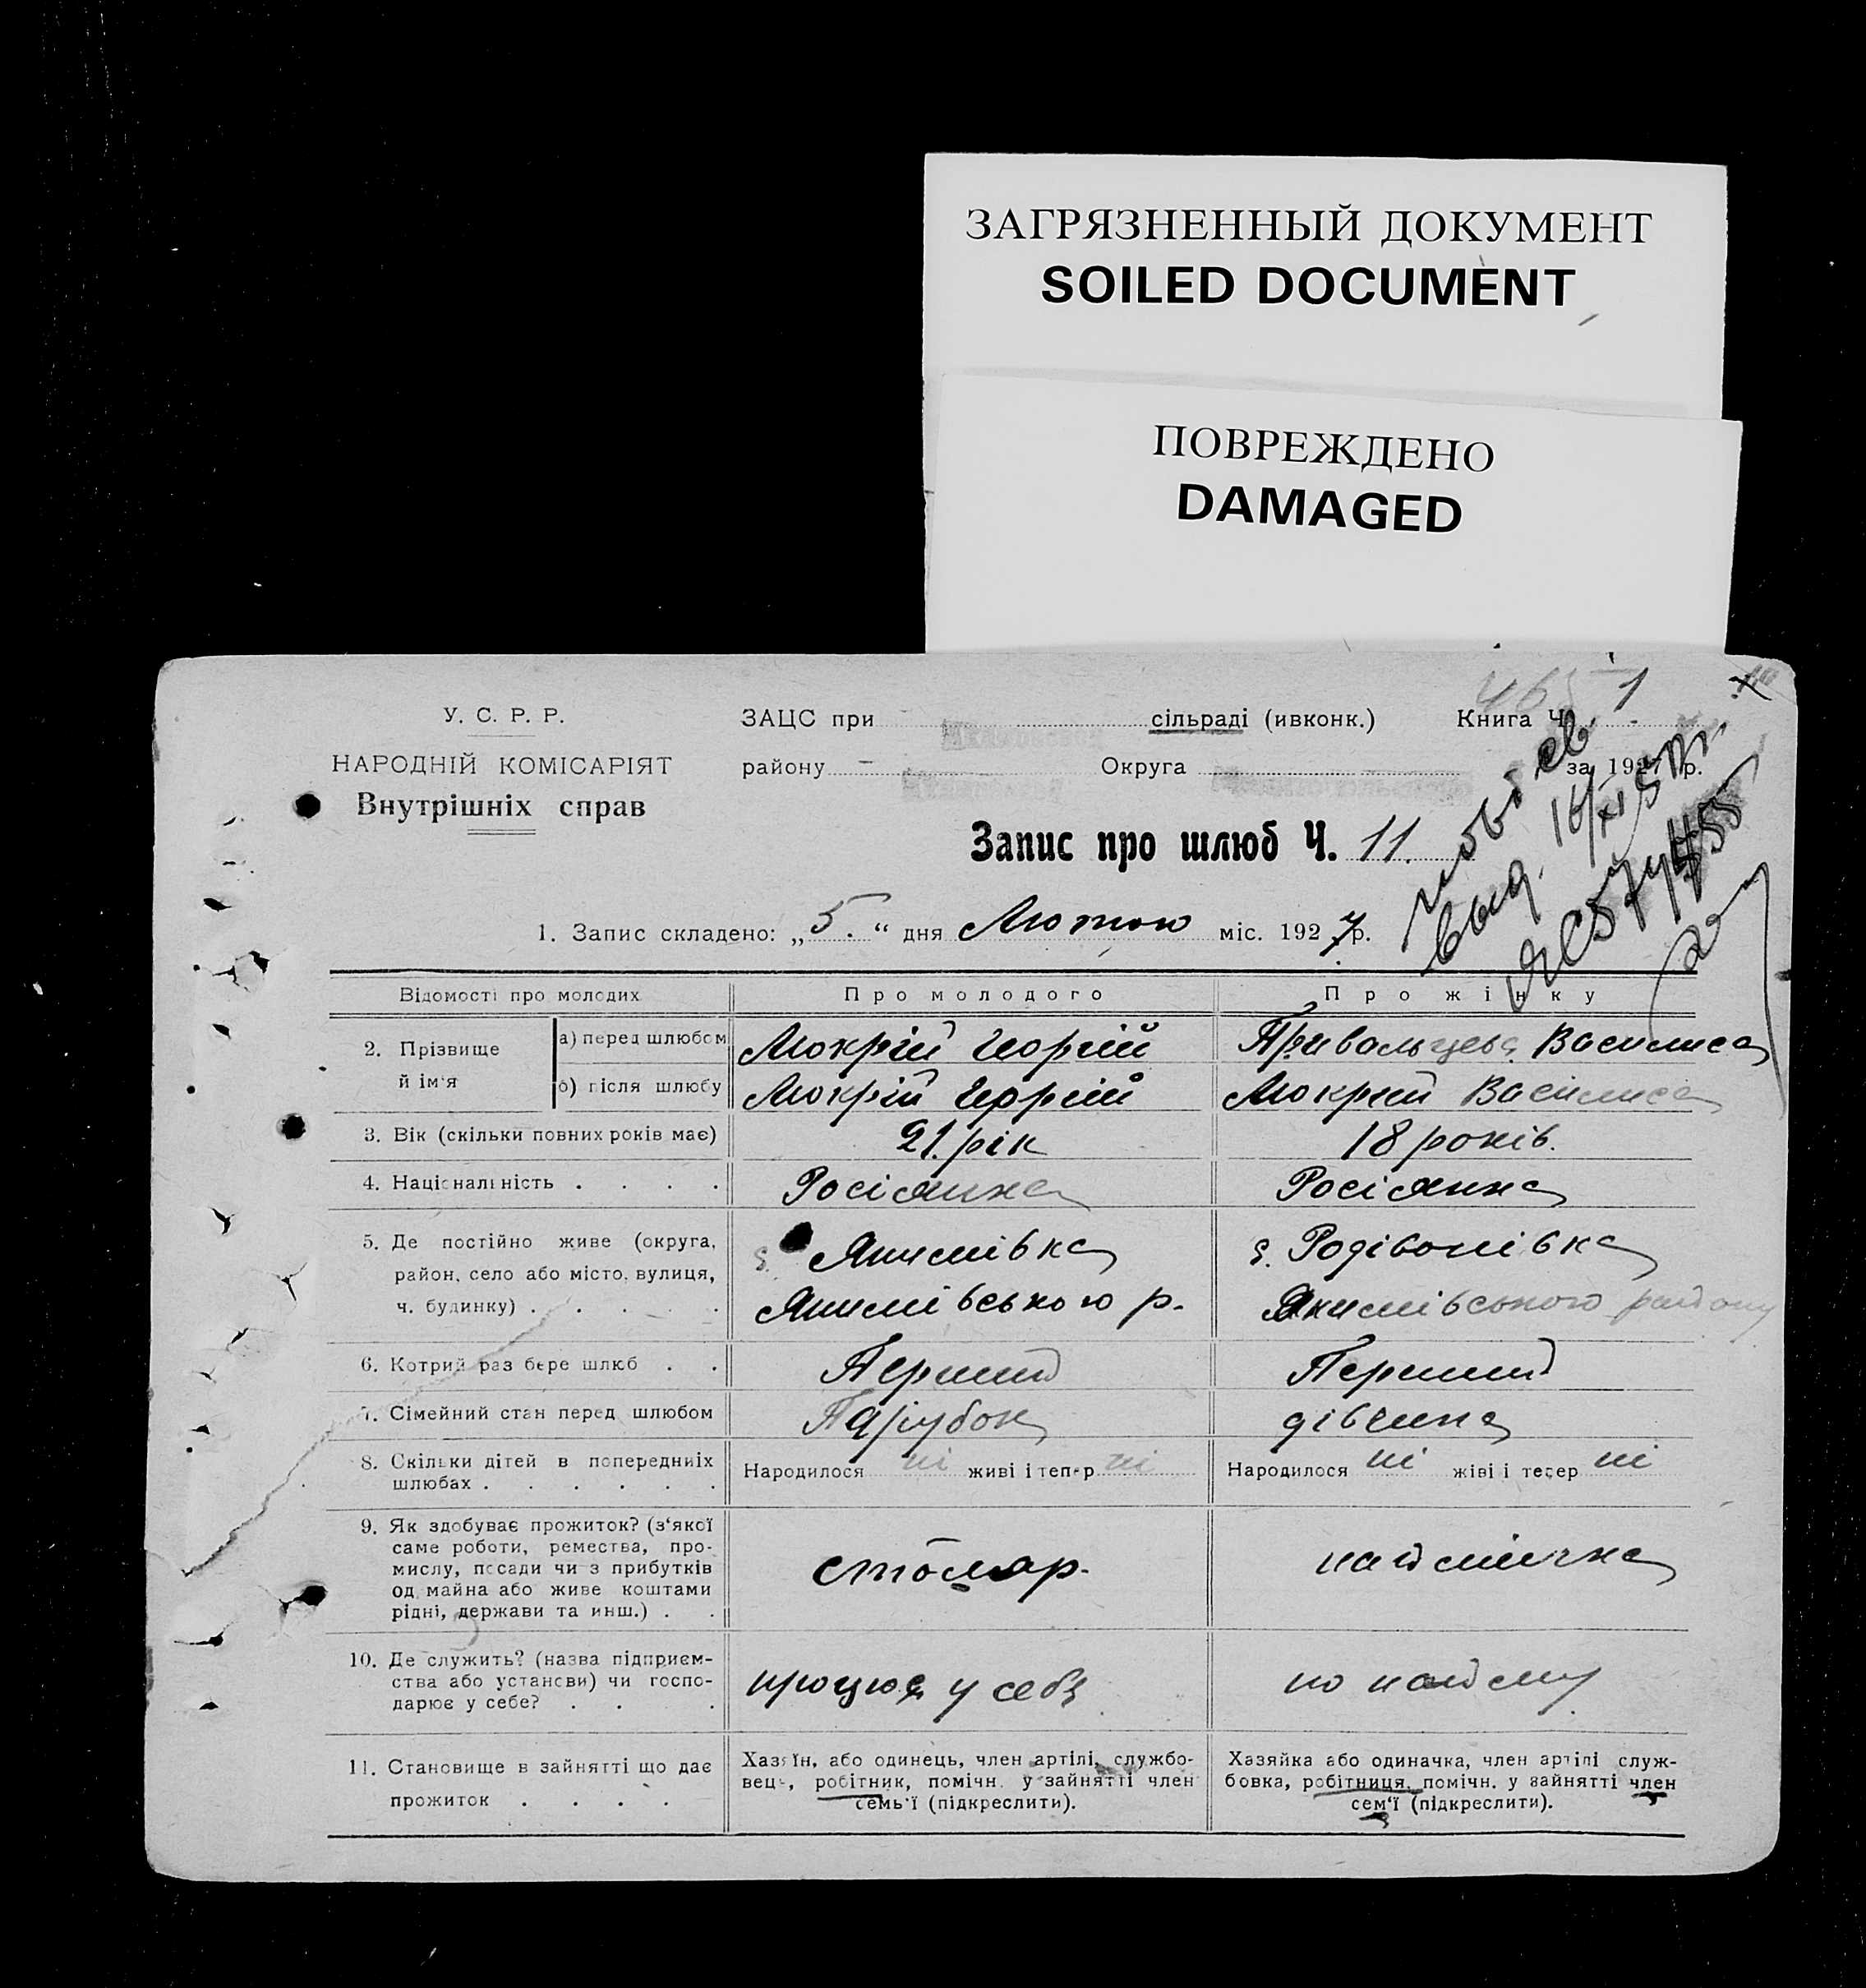 ЗАГРЯЗНЕННЫЙ ДОКУМЕНТ
SOILED DOCUMENT
ПОВРЕЖДЕНО
DAMAGED
У. С. Р. Р.
НАРОДНІЙ КОМІСАРІЯТ
Внутрішніх справ
ЗАЦС при сільраді (ивконк.) Книга Ч. 1
району Округа за 1927 р.
Запис про шлюб Ч. 11.
1. Запис складено: „5.“ дня Лютого міс. 1927 р.
Відомості про молодих Про молодого Про жінку
2. Прізвище й ім'я
а) перед шлюбом Мокрій Георгій Привальцева Василиса
б) після шлюбу Мокрій Георгій Мокрий Василиса
3. Вік (скільки повних років має) 21. рік 18 років.
4. Національність . . . . Росіянка Росіянка
5. Де постійно живе (округа, район, село або місто, вулиця, ч. будинку) . . . . .
с. Якимівка с. Родівонівка
Якимівського р. Якимівського району
6. Котрий раз бере шлюб . . Перший Перший
7. Сімейний стан перед шлюбом Парубок дівчина
8. Скільки дітей в попередниіх шлюбах . . . . . .
Народилося ні живі і тепер ні Народилося ні жіві і тепер ні
9. Як здобуває прожиток? (з'якої
саме роботи, ремества, про-
мислу, посади чи з прибутків
од майна або живе коштами
рідні, держави та инш.) . .
столяр. наймичка
10. Де служить? (назва підприєм-
ства або установи) чи госпо-
дарює у себе? . . .
працює у себе по найму
11. Становище в зайнятті що дає
прожиток . . . .
Хазяїн, або одинець, член артілі, службо-
вець, робітник, помічн. у зайнятті член
семь'ї (підкреслити).
Хазяйка або одиначка, член артілі служ-
бовка, робітниця, помічн. у зайнятті член
сем'ї (підкреслити).